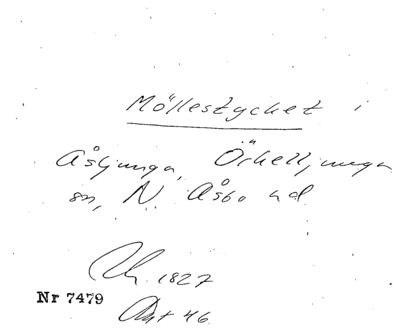 Möllestycket i
Åsljunga, Örkelljunga
sn, N. Åsbo hd
1827
Nr 7479
46